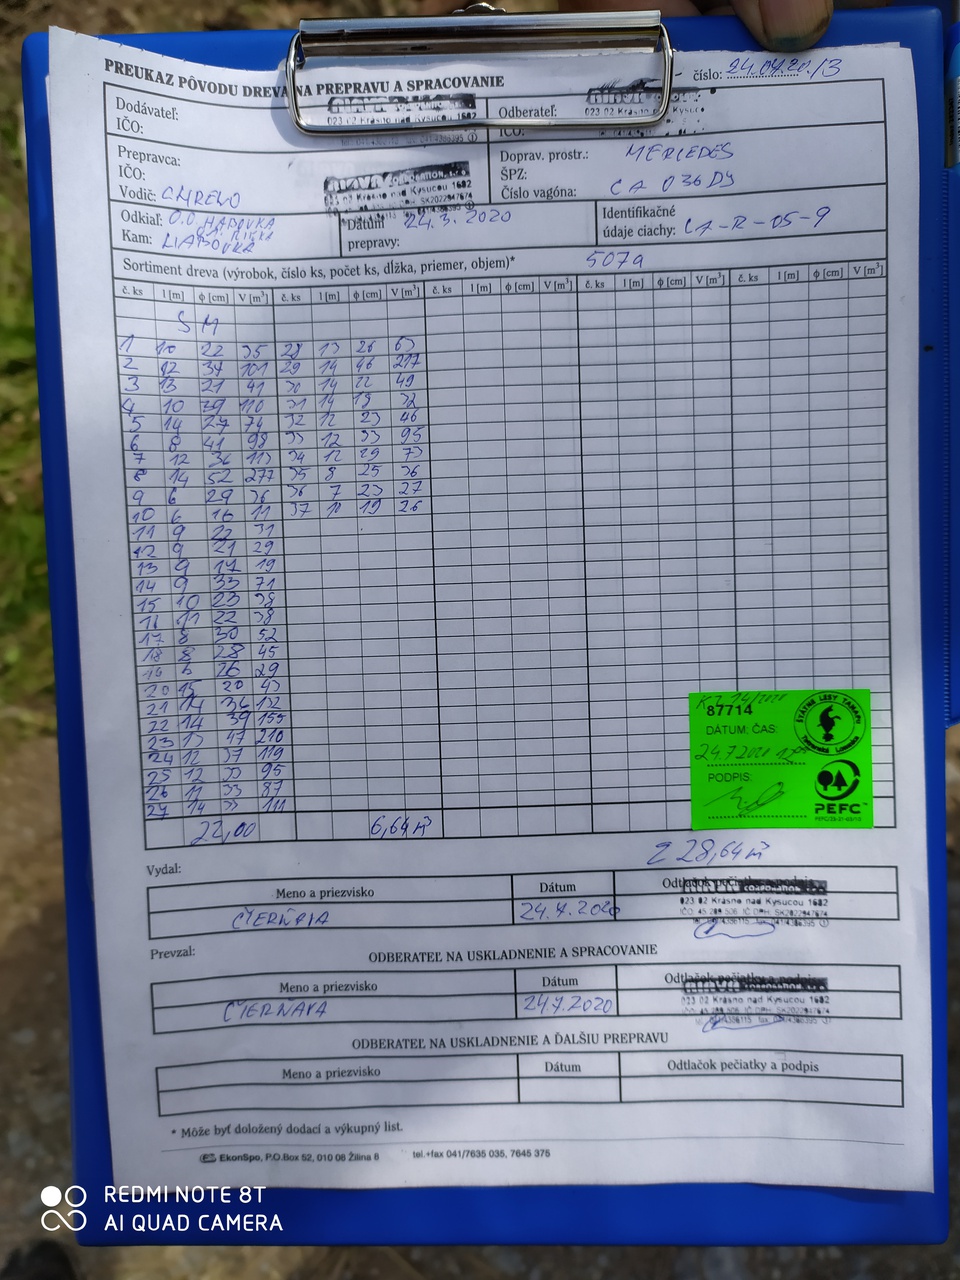 PREUKAZ PÔVODU DREVA NA PREPRAVU A SPRACOVANIE
číslo: 24.07.20./3
Dodávateľ:
IČO:
023 02 Krásno nad Kysucou 1682
Odberateľ:
IČO:
023 02 Krásno nad Kysuc
Prepravca:
IČO:
Vodič:
CORPORATION, s.r.o.
023 02 Krásno nad Kysucou 1682
SK2022947674
Doprav. prostr.: MERCEDES
ŠPZ:
Číslo vagóna: CA 036DY
Odkiaľ: O.O HABOVKA
Kam: HABOVKA
Dátum prepravy: 24.3.2020
Identifikačné údaje ciachy: CA-R-05-9
Sortiment dreva (výrobok, číslo ks, počet ks, dĺžka, priemer, objem)* 5079
č. ks l [m] φ [cm] V [m³] č. ks l [m] φ [cm] V [m³] č. ks l [m] φ [cm] V [m³] č. ks l [m] φ [cm] V [m³] č. ks l [m] φ [cm] V [m³]
SM
1 10 22 35 28 13 26 63
2 12 34 101 29 14 46 217
3 13 21 41 30 14 22 49
4 10 39 110 31 14 19 32
5 14 27 74 32 12 23 46
6 8 41 98 33 12 33 95
7 12 36 113 34 12 29 73
8 14 52 277 35 8 25 36
9 6 29 36 36 7 23 27
10 6 16 11 37 10 19 26
11 9 22 31
12 9 21 29
13 9 17 19
14 9 33 71
15 10 23 38
16 11 22 38
17 8 30 52
18 8 28 45
19 26 29
20 15 20 43
21 14 36 132
22 14 39 155
23 13 47 210
24 12 37 119
25 12 33 95
26 11 33 87
27 14 33 111
22,00 6,64 m³
Σ 28,64 m³
87714
DÁTUM; ČAS:
24.7.2020
PODPIS:
ŠTÁTNE LESY TANAPU
Tatranská Lomnica
PEFC™
Vydal:
Meno a priezvisko Dátum Odtlačok pečiatky a podpis
ČIERŇAVA 24.7.2020
CORPORATION s.r.o.
023 02 Krásno nad Kysucou 1682
IČ DPH: SK2022947674
Prevzal:
ODBERATEĽ NA USKLADNENIE A SPRACOVANIE
Meno a priezvisko Dátum Odtlačok pečiatky a podpis
ČIERŇAVA 24.7.2020
023 02 Krásno nad Kysucou 1682
ODBERATEĽ NA USKLADNENIE A ĎALŠIU PREPRAVU
Meno a priezvisko Dátum Odtlačok pečiatky a podpis
* Môže byť doložený dodací a výkupný list.
EkonSpo, P.O.Box 52, 010 08 Žilina 8 tel.+fax 041/7635 035, 7645 375
REDMI NOTE 8T
AI QUAD CAMERA